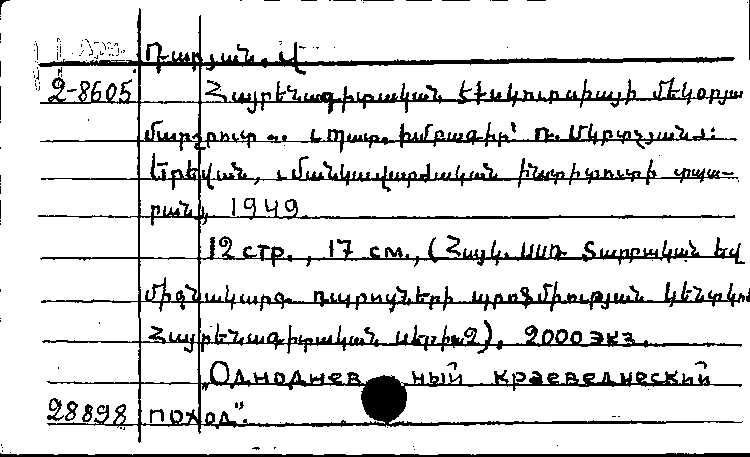 Դարյան. Վ
2-8605 Հայրենագիտական էքսկուրսիայի մեկօրյա
մարշրուտ ... (Պատ. խմբագիր՝ Ռ. Մկրտչյան):
Երեվան, Մանկավարժական ինստիտուտի տպա-
րան, 1949
12 стр., 17 см., (Հայկ. ՍՍՌ Տարրական եվ
միջնակարգ դպրոցների պրոֆմիության կենտկոմ
Հայրենագիտական սերիա 2). 2000 экз.
„Одноднев ный краеведческий
28898 поход".